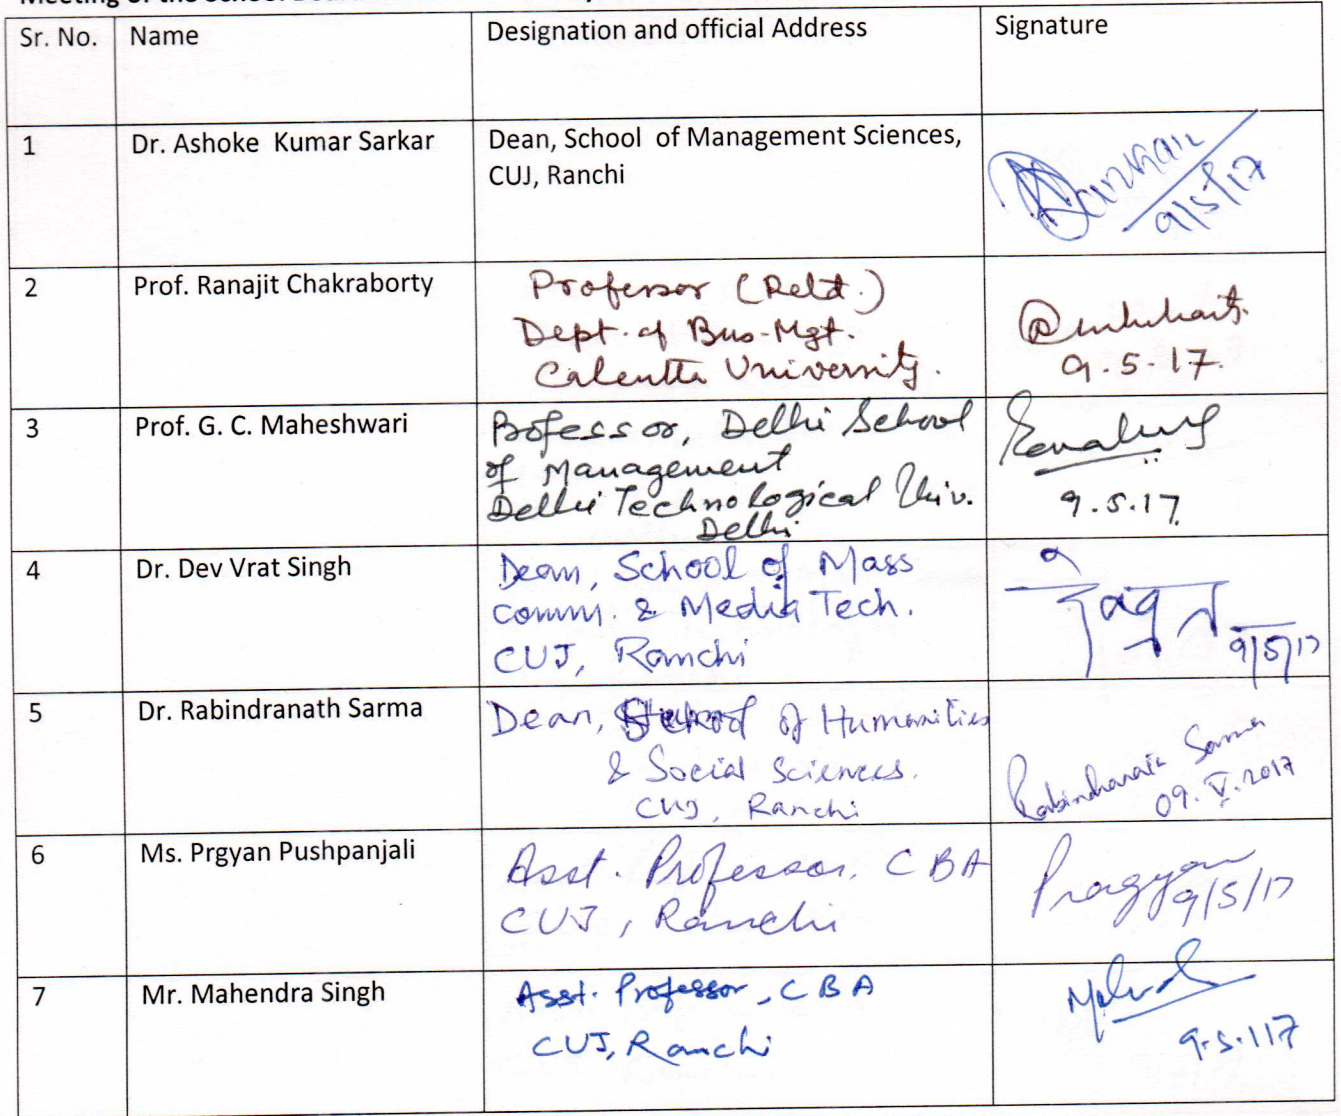 Meeting of the School Board
Sr. No. Name Designation and official Address Signature
1 Dr. Ashoke Kumar Sarkar Dean, School of Management Sciences,
CUJ, Ranchi
Sarkar
9/5/17
2 Prof. Ranajit Chakraborty Professor (Retd.)
Dept. of Bus-Mgt.
Calcutta University.
9.5.17.
3 Prof. G. C. Maheshwari Professor, Delhi School
of Management
Delhi Technological Univ.
Delhi
9.5.17.
4 Dr. Dev Vrat Singh Dean, School of Mass
Comm. & Media Tech.
CUJ, Ranchi
9/5/17
5 Dr. Rabindranath Sarma Dean, School of Humanities
& Social Sciences.
CUJ, Ranchi
Rabindranath Sarma
09.V.2017
6 Ms. Prgyan Pushpanjali Asst. Professor, CBA
CUJ, Ranchi
Pragyan
9/5/17
7 Mr. Mahendra Singh Asst. Professor, CBA
CUJ, Ranchi
9.5.117